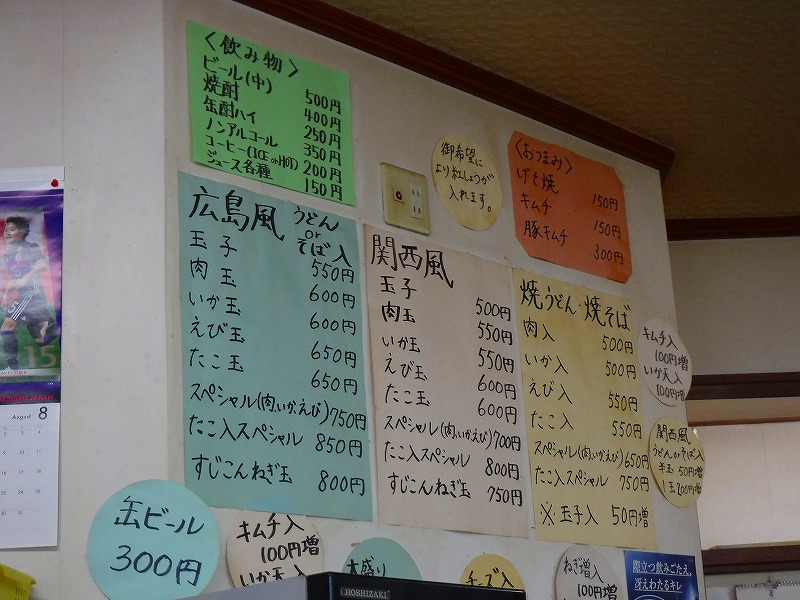 <飲み物>
ビール(中) 500円
焼酎 400円
缶酎ハイ 250円
ノンアルコール 350円
コーヒー(ICE or HOT) 200円
ジュース各種 150円
御希望に
より紅しょうが
入れます。
<おつまみ>
げそ焼 150円
キムチ 150円
豚キムチ 300円
広島風 うどん or そば入
玉子 550円
肉玉 600円
いか玉 600円
えび玉 650円
たこ玉 650円
スペシャル(肉,いか,えび) 750円
たこ入スペシャル 850円
すじこんねぎ玉 800円
関西風
玉子 500円
肉玉 550円
いか玉 550円
えび玉 600円
たこ玉 600円
スペシャル(肉,いか,えび) 700円
たこ入スペシャル 800円
すじこんねぎ玉 750円
焼うどん・焼そば
肉入 500円
いか入 500円
えび入 550円
たこ入 550円
スペシャル(肉,いか,えび) 650円
たこ入スペシャル 750円
※玉子入 50円増
キムチ入
100円増
いか天入
100円増
関西風
うどんorそば入
半玉 50円増
1玉 100円増
缶ビール
300円
キムチ入
100円増
いか天入
大盛り
チーズ入
ねぎ増入
100円増
際立つ飲みごたえ、
冴えわたるキレ
HOSHIZAKI
August 8
15